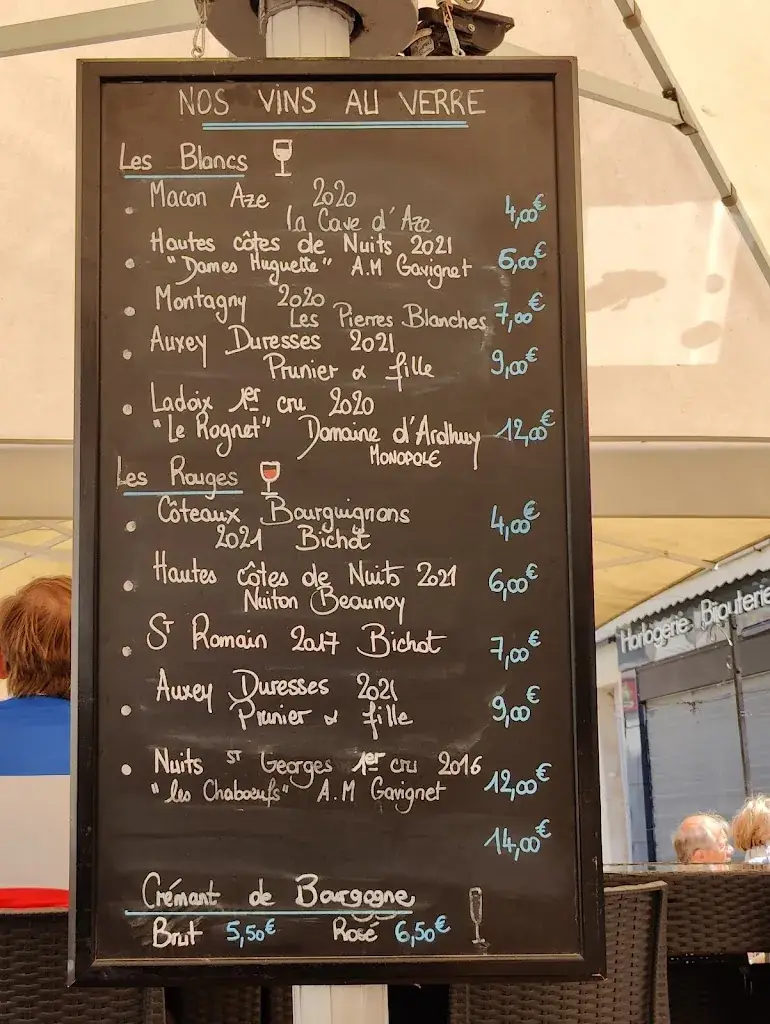 NOS VINS AU VERRE
Les Blancs
Macon Aze 2020
la Cave d'Aze 4,00€
Hautes côtes de Nuits 2021
"Dames Huguette" A.M Gavignet 6,00€
Montagny 2020
Les Pierres Blanches 7,00€
Auxey Duresses 2021
Prunier & fille 9,00€
Ladoix 1er cru 2020
"Le Rognet" Domaine d'Ardhuy 12,00€
MONOPOLE
Les Rouges
Côteaux Bourguignons 4,00€
2021 Bichot
Hautes côtes de Nuits 2021 6,00€
Nuiton Beaunoy
St Romain 2017 Bichot 7,00€
Auxey Duresses 2021
Prunier & fille 9,00€
Nuits St Georges 1er cru 2016
"les Chaboeufs" A.M Gavignet 12,00€
14,00€
Crémant de Bourgogne
Brut 5,50€ Rosé 6,50€
Horlogerie Bijouterie